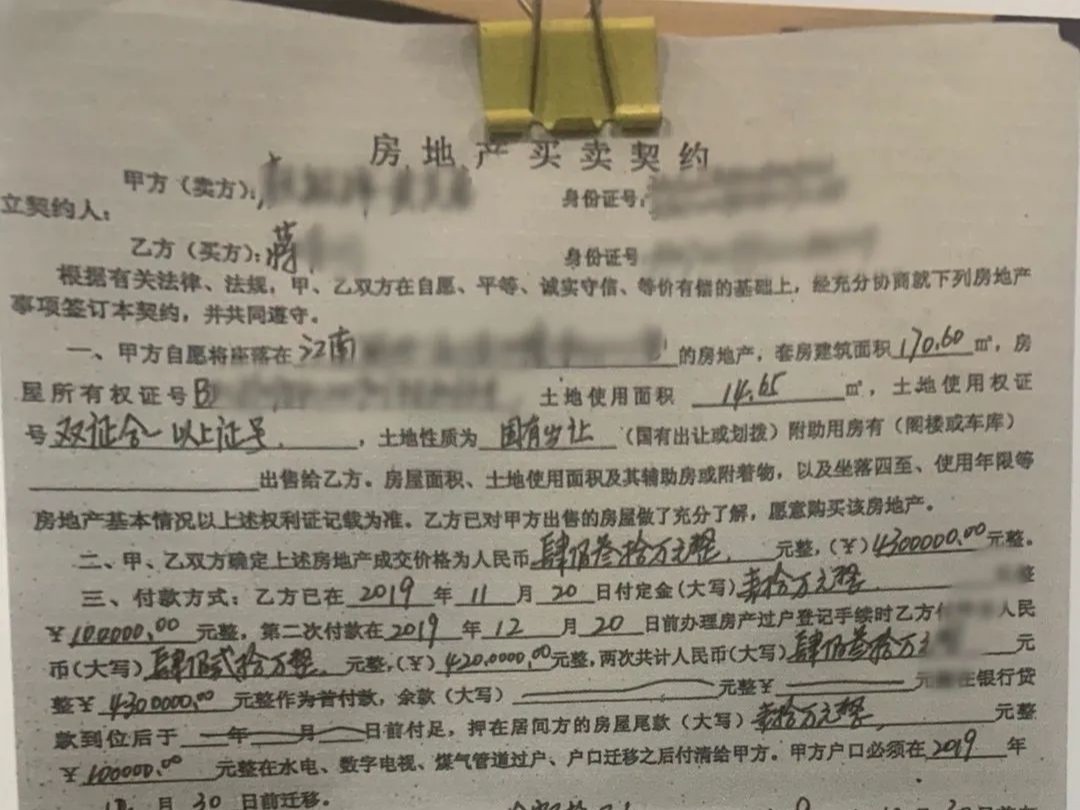 房地产买卖契约
甲方（卖方）： 身份证号：
立契约人：
乙方（买方）：蒋 身份证号
根据有关法律、法规，甲、乙双方在自愿、平等、诚实守信、等价有偿的基础上，经充分协商就下列房地产
事项签订本契约，并共同遵守。
一、甲方自愿将座落在江南 的房地产，套房建筑面积170.60㎡，房
屋所有权证号B 土地使用面积 14.65 ㎡，土地使用权证
号双证合一以上证号，土地性质为 国有出让 （国有出让或划拨）附助用房有（阁楼或车库）
出售给乙方。房屋面积、土地使用面积及其辅助房或附着物，以及坐落四至、使用年限等
房地产基本情况以上述权利证记载为准。乙方已对甲方出售的房屋做了充分了解，愿意购买该房地产。
二、甲、乙双方确定上述房地产成交价格为人民币肆佰叁拾万元整 元整，（￥）4300000.00元整。
三、付款方式：乙方已在 2019 年 11 月 20 日付定金（大写）壹拾万元整 整
￥100000.00 元整，第二次付款在2019 年 12 月 20 日前办理房产过户登记手续时乙方付 人民
币（大写）肆佰贰拾万整 元整，（￥）4200000.00元整，两次共计人民币（大写）肆佰叁拾万元 元
整￥4300000.00 元整作为首付款，余款（大写） 元整￥ 在银行贷
款到位后于 年 月 日前付足，押在居间方的房屋尾款（大写）壹拾万元整 元整
￥100000.00 元整在水电、数字电视、煤气管道过户、户口迁移之后付清给甲方。甲方户口必须在2019 年
月30日前迁移。